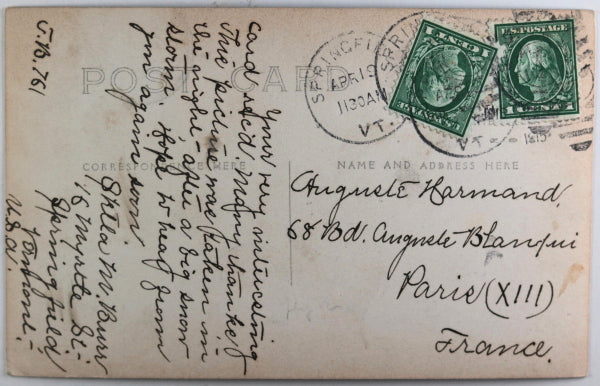 POST CARD
CORRESPONDENCE HERE
NAME AND ADDRESS HERE
Your very interesting
card rec'd many thanks
This picture was taken in
the night - after a big snow
storm. Hope to hear from
you again soon
Stella M. Burr
16 Myrtle St.
Springfield
Vermont
U.S.A.
J.B. 761
SPRINGFI
APR 19
1130AM
VT.
SPRIN
VT.
1 CENT 1
U.S. POSTAGE
1 CENT 1
Auguste Harmand
68 Bd. Auguste Blanqui
Paris (XIII)
France.